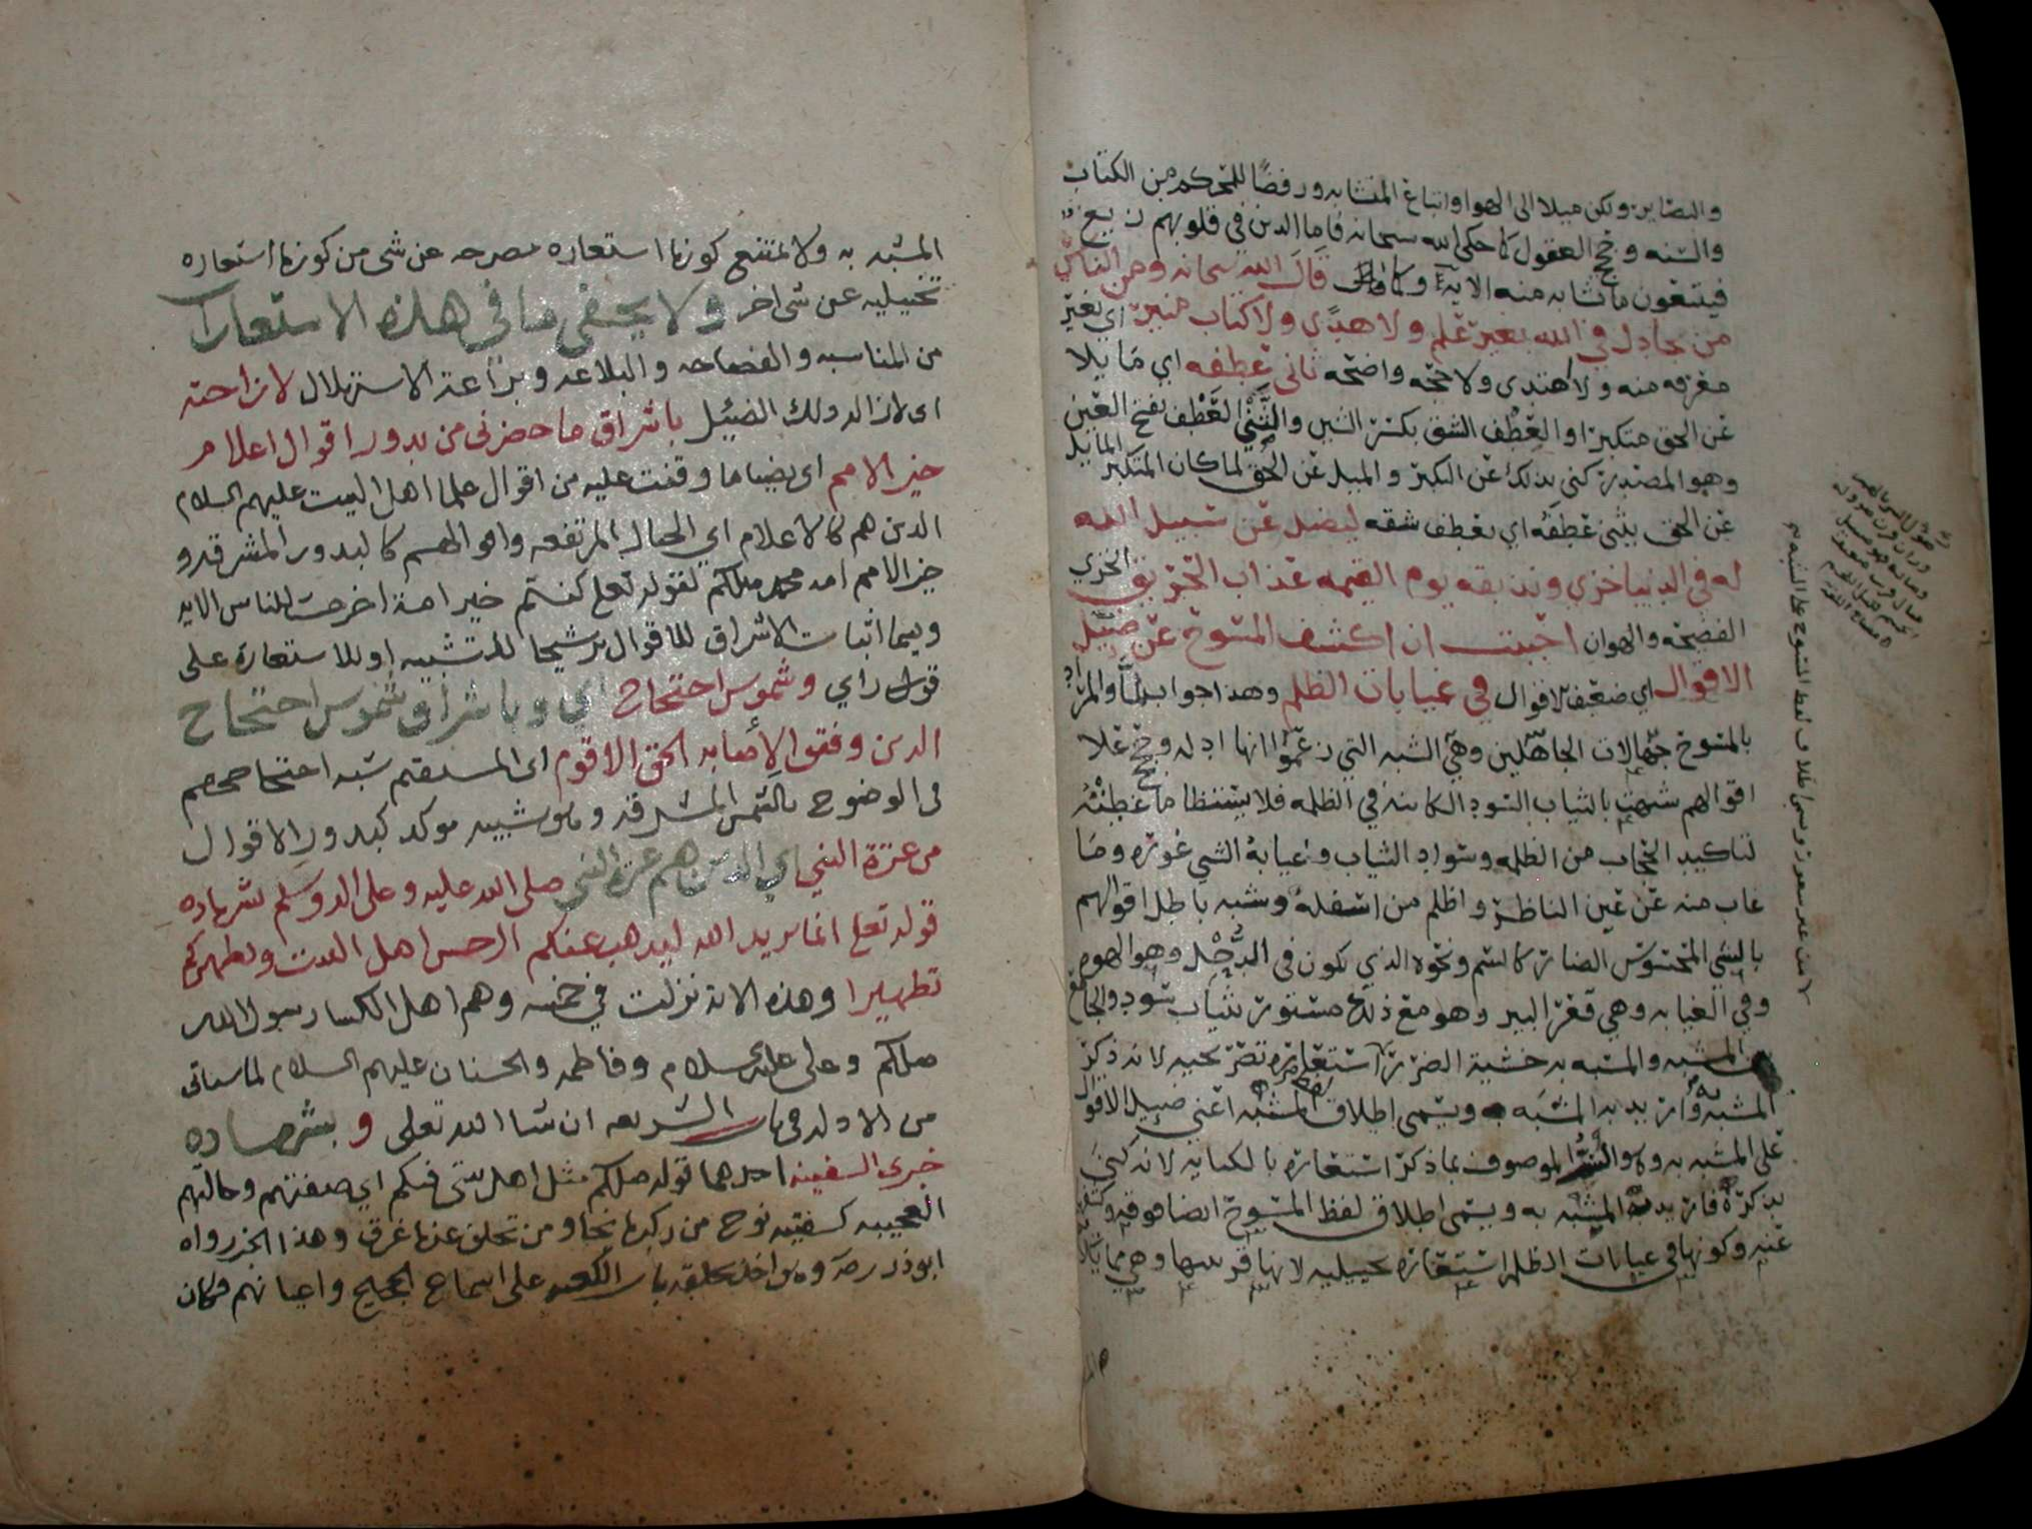 والبصاير ولكن ميلا الى الهوا واتباع المتشابه ورفضا للمحكم من الكتاب
والسنه وحجج العقول كما حكى الله سبحانه فاما الذين في قلوبهم زيغ
فيتبعون ما تشابه منه الايه وكما قال الله سبحانه ومن الناس
من يجادل في الله بغير علم ولا هدى ولا كتاب منير اي بغير
معرفه منه ولا اهتدى ولا حجه واضحه ثاني عطفه اي مايلا
عن الحق متكبرا والعطف الشق بكسر الشين والثني العطف بفتح العين
وهو المصدر كني بذلك عن التكبر والميل عن الحق لما كان المتكبر المايل
عن الحق يثني عطفه اي يعطف شقه ليضل عن سبيل الله
له في الدنيا خزي ونذيقه يوم القيمه عذاب الحريق الخزي
الفضيحه والهوان احببت ان اكشف المسوح عن ضئيل
الاقوال اي ضعيف الاقوال في غيابات الظلم وهذا جواب لما والمراد
بالمسوح جهالات الجاهلين وهي الشبه التي زعموا انها ادله وحجج على
اقوالهم شبهت بالثياب السود الكاينه في الظلمه فلا يستنظا ما غطته
لتاكيد الحجاب من الظلمه وسواد الثياب وغيابة الشي غوره وما
غاب منه عن عين الناظر واظلم من اسفله وشبه باطل اقوالهم
بالشي المحسوس الضار كالسم ونحوه الذي يكون في الدحل وهو الهوه
وفي الغيابه وهي قعر البير وهو مع ذلك مستور بثياب سود والجامع
بين المشبه والمشبه به خشية الضرر استعاره تصريحيه لانه ذكر
المشبه به واريد به المشبه ويسمى اطلاق لفظ المشبه اعني ضئيل الاقوال
على المشبه به وهو الموصوف بما ذكر استعاره بالكنايه لانه كنى
بذكره فاريد به المشبه به ويسمى اطلاق لفظ المسوح ايضا
عنه وكونها في غيابات الظلم استعاره تخييليه لانها قرينتها وهي مما
المشبه به ولا يمتنع كونها استعاره مصرحه عن شي من كونها استعاره
تخييليه عن شي اخر ولا يخفى ما في هذه الاستعارات
من المناسبه والفصاحه والبلاغه وبراعة الاستهلال لازاحته
اي لازاله ذلك الضئيل باشراق ما حضرني من بدور اقوال اعلام
خير الامم اي بضيا ما وقفت عليه من اقوال علما اهل البيت عليهم السلام
الذين هم كالاعلام اي الجبال المرتفعه واقوالهم كالبدور المشرقه و
خير الامم امه محمد صلىلكم لقوله تعلى كنتم خير امة اخرجت للناس الايه
وربما اثبات الاشراق للاقوال ترشيحا للتشبيه او للاستعارة على
قول راي وشموس احتجاج اي وباشراق شموس احتجاج
الذين وفقوا لاصابه الحق الاقوم اي المستقيم شبه احتجاجهم
في الوضوح بالشمس المشرقه وهو تشبيه موكد كبدور الاقوال
من عترة النبي اي الذين هم عترة النبي صلى الله عليه وعلى اله وسلم بشهاده
قوله تعلى انما يريد الله ليذهب عنكم الرجس اهل البيت ويطهركم
تطهيرا وهذه الايه نزلت في خمسه وهم اهل الكسا رسول الله
صلىلكم وعلي عليه السلام وفاطمه والحسنان عليهم السلام لما سياتي
من الادله في باب الشريعه ان شا الله تعلى و بشهاده
خبرى السفينه احدهما قوله صلىلكم مثل اهل بيتي فيكم اي صفتهم وحالتهم
العجيبه كسفينه نوح من ركبها نجا ومن تخلف عنها غرق وهذا الخبر رواه
ابو ذر رضه وهو اخذ بحلقه باب الكعبه على اسماع الحجيج واعيانهم وكان